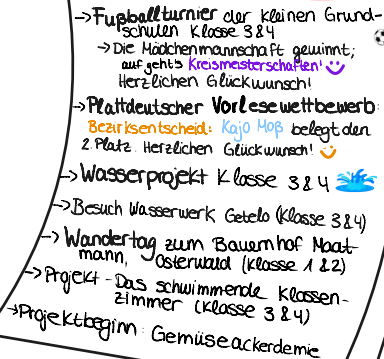 →Fußballturnier der kleinen Grund-
schulen Klasse 3&4
→Die Mädchenmannschaft gewinnt;
auf geht's Kreismeisterschaften!
Herzlichen Glückwunsch!
→Plattdeutscher Vorlesewettbewerb:
Bezirksentscheid: Kajo Moß belegt den
2. Platz. Herzlichen Glückwunsch!
→Wasserprojekt Klasse 3&4
→Besuch Wasserwerk Getelo (Klasse 3&4)
→Wandertag zum Bauernhof Maat-
mann, Osterwald (Klasse 1&2)
→Projekt - Das schwimmende Klassen-
zimmer (Klasse 3&4)
→Projektbeginn: Gemüseackerdemie